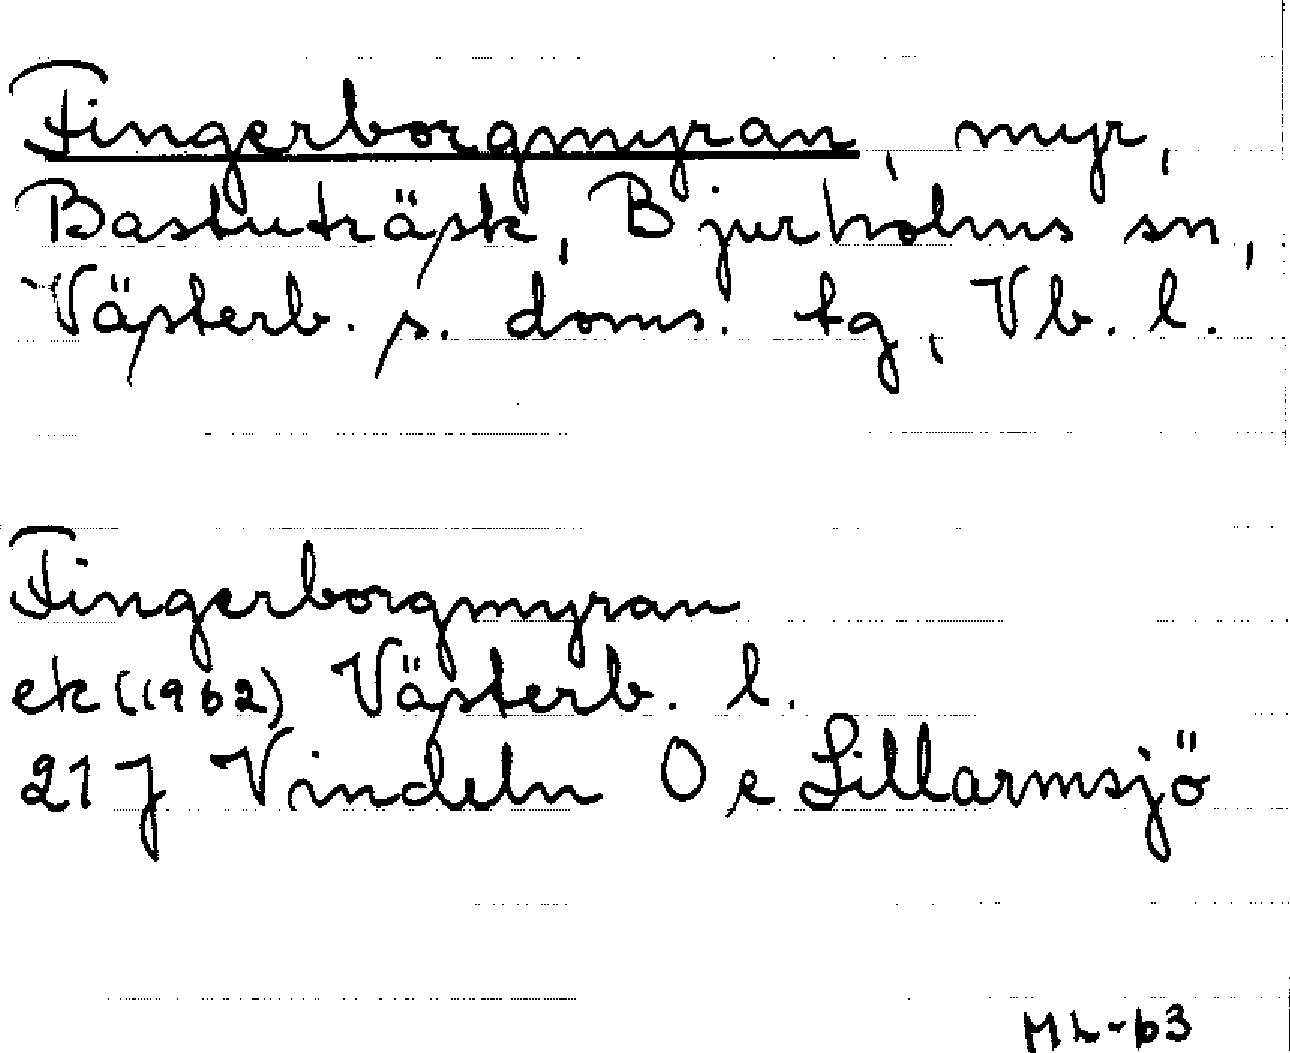 Fingerborgmyran, myr,
Bastuträsk, Bjurholms sn,
Västerb. s. doms. tg, Vb. l.
Fingerborgmyran
ek (1962) Västerb. l.
21 J Vindeln 0 e Lillarmsjö
ML-63